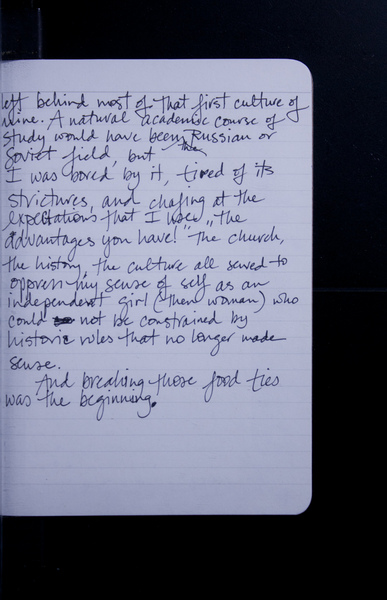 left behind most of that first culture of
mine. A natural academic course of
study would have been the Russian or
Soviet field, but
I was bored by it, tired of its
strictures, and chafing at the
expectations that I use „the
advantages you have!" The church,
the history, the culture all served to
oppress my sense of self as an
independent girl (then woman) who
could not be constrained by
historic rules that no longer made
sense.
And breaking those food ties
was the beginning.